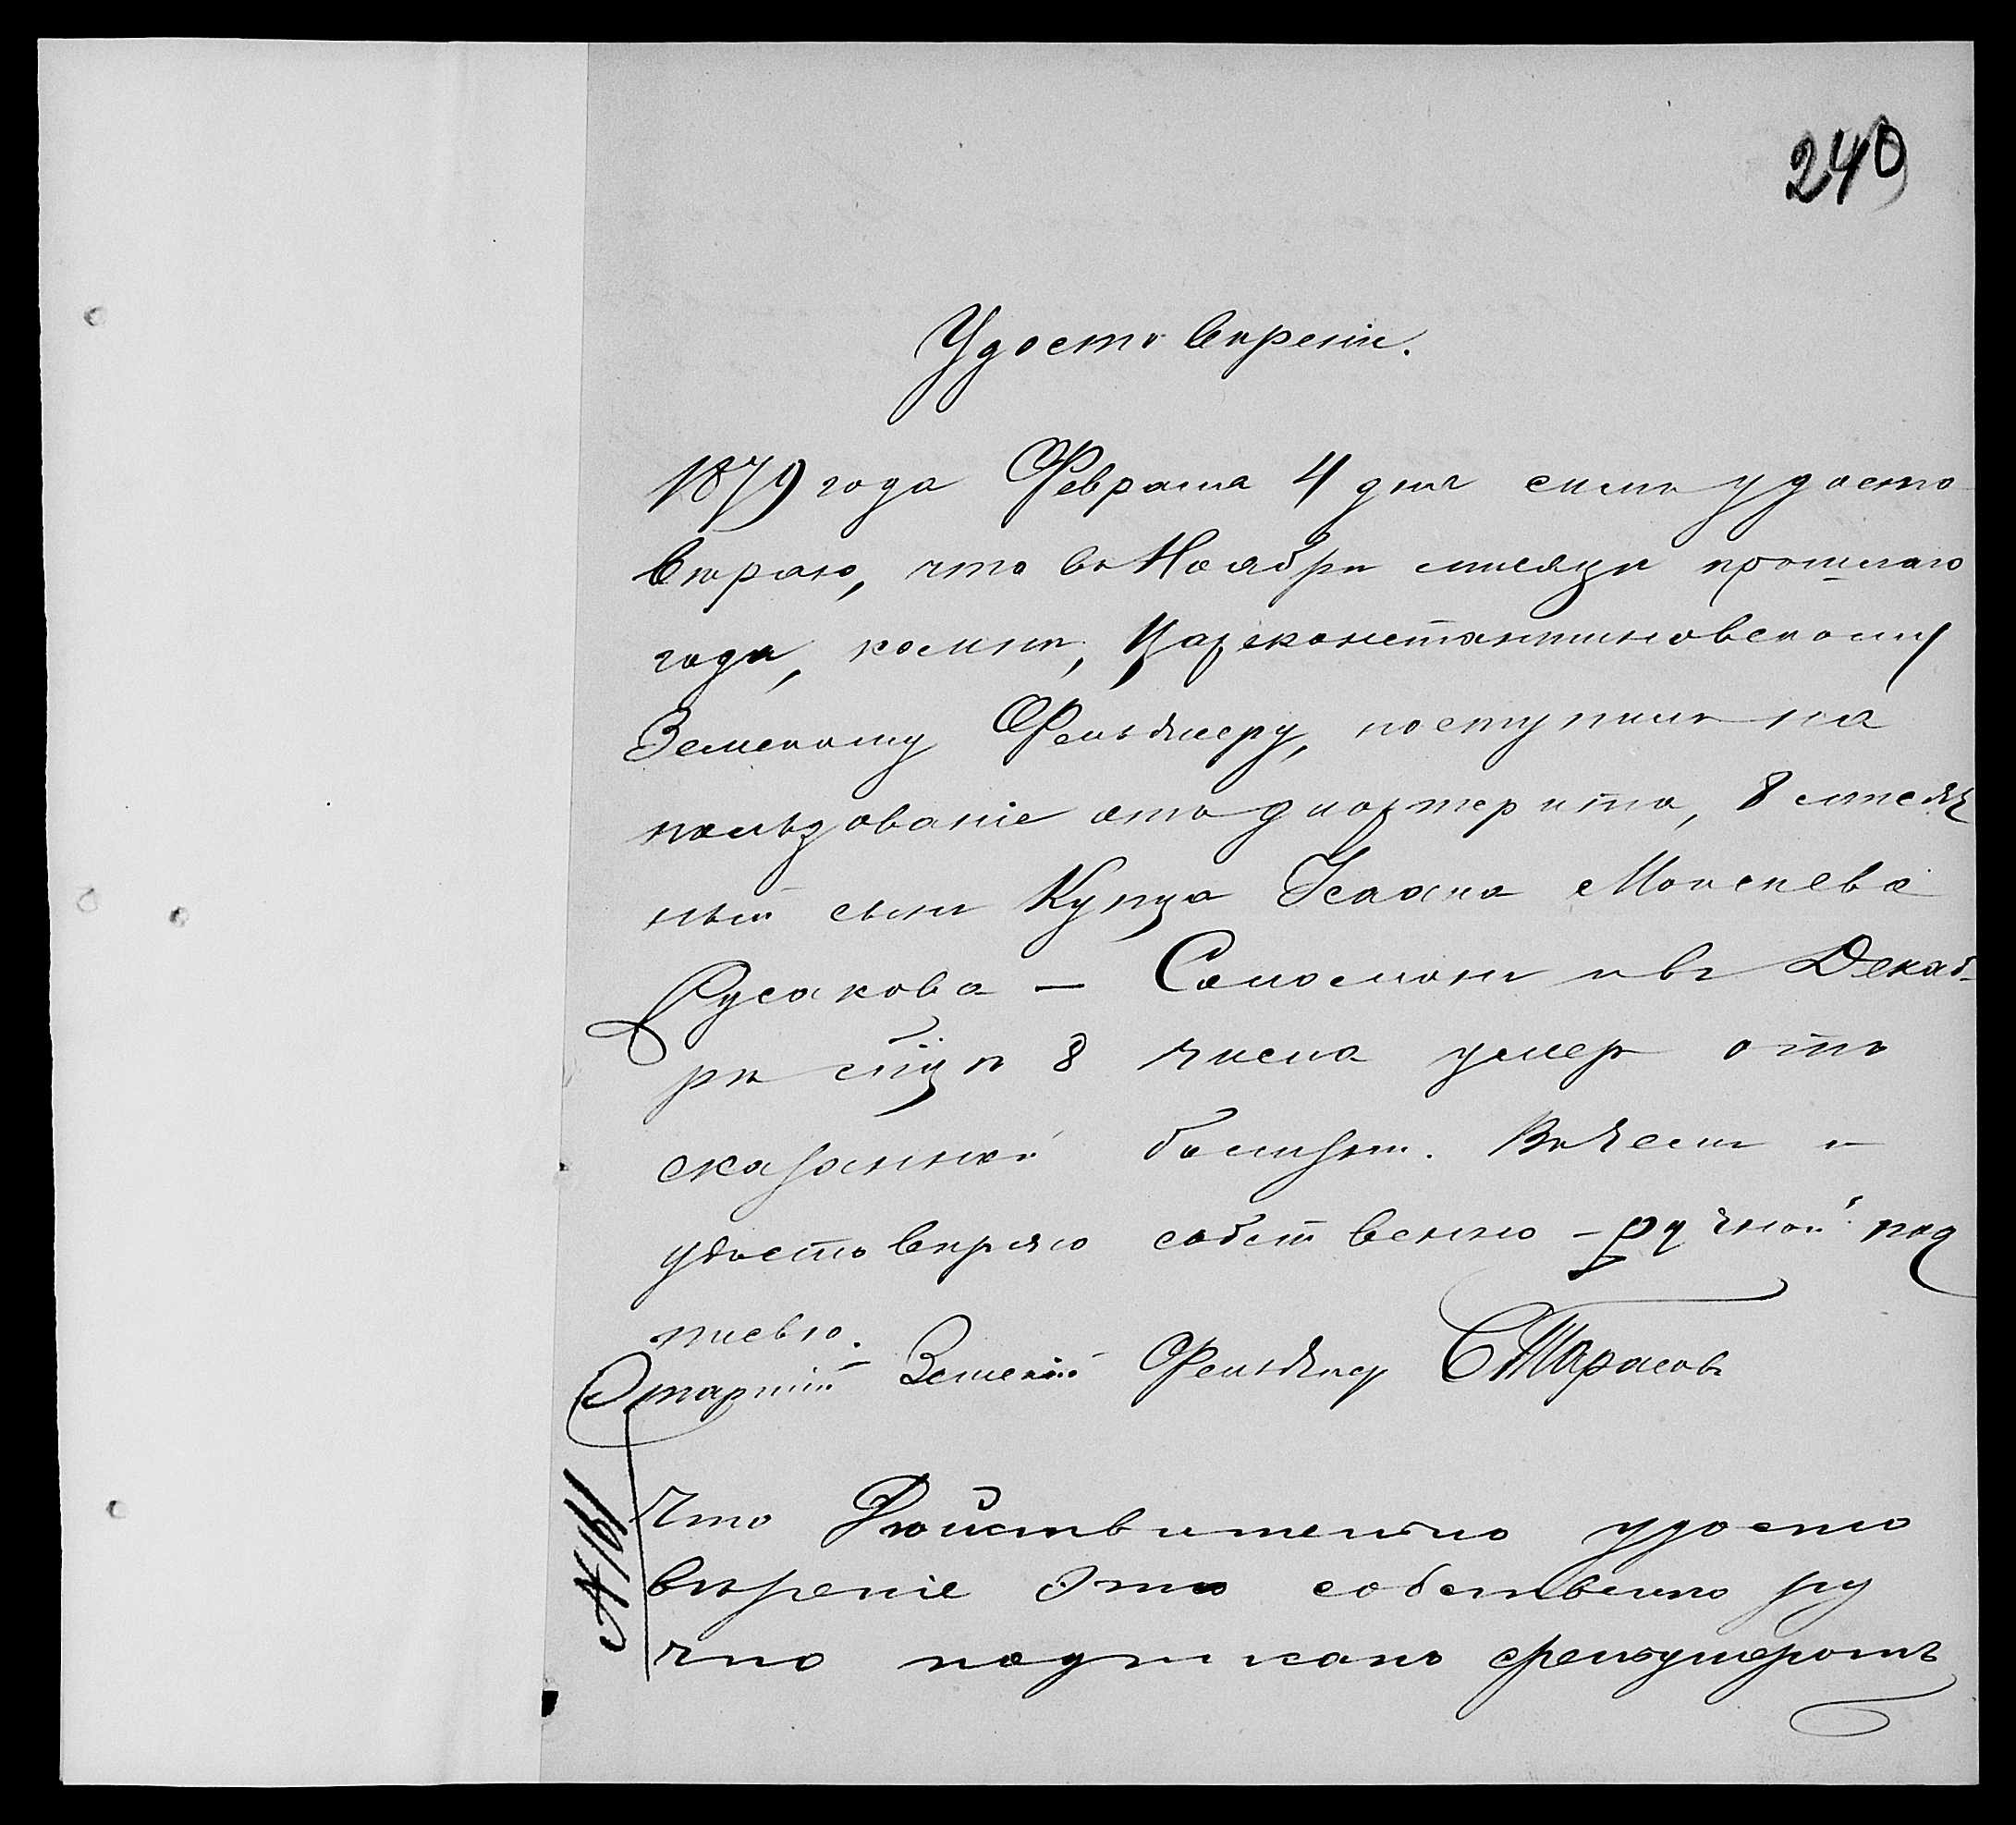 240
Удостовѣреніе.
1879 года Февраля 4 дня симъ удосто
вѣраю, что въ Ноябрѣ мѣсяцѣ прошлаго
года, комнѣ, Цареконстантиновскому
Земскому Фельдшеру, поступилъ на
пользованіе отъ диөтерита, 8 мѣсяч
ный сынъ Купца Исаака Моисеева
Русакова — Соломонъ и въ Декаб-
рѣ м̃цѣ 8 числа умеръ отъ
сказанной болѣзни. Въ чемъ и
удостовѣряю собственно-ручной под
писью.
Старшій Земскій Фельдшеръ С Тарасовъ
Что Действительно удосто
вѣреніе это собственно ру
чно подписано фельдшеромъ